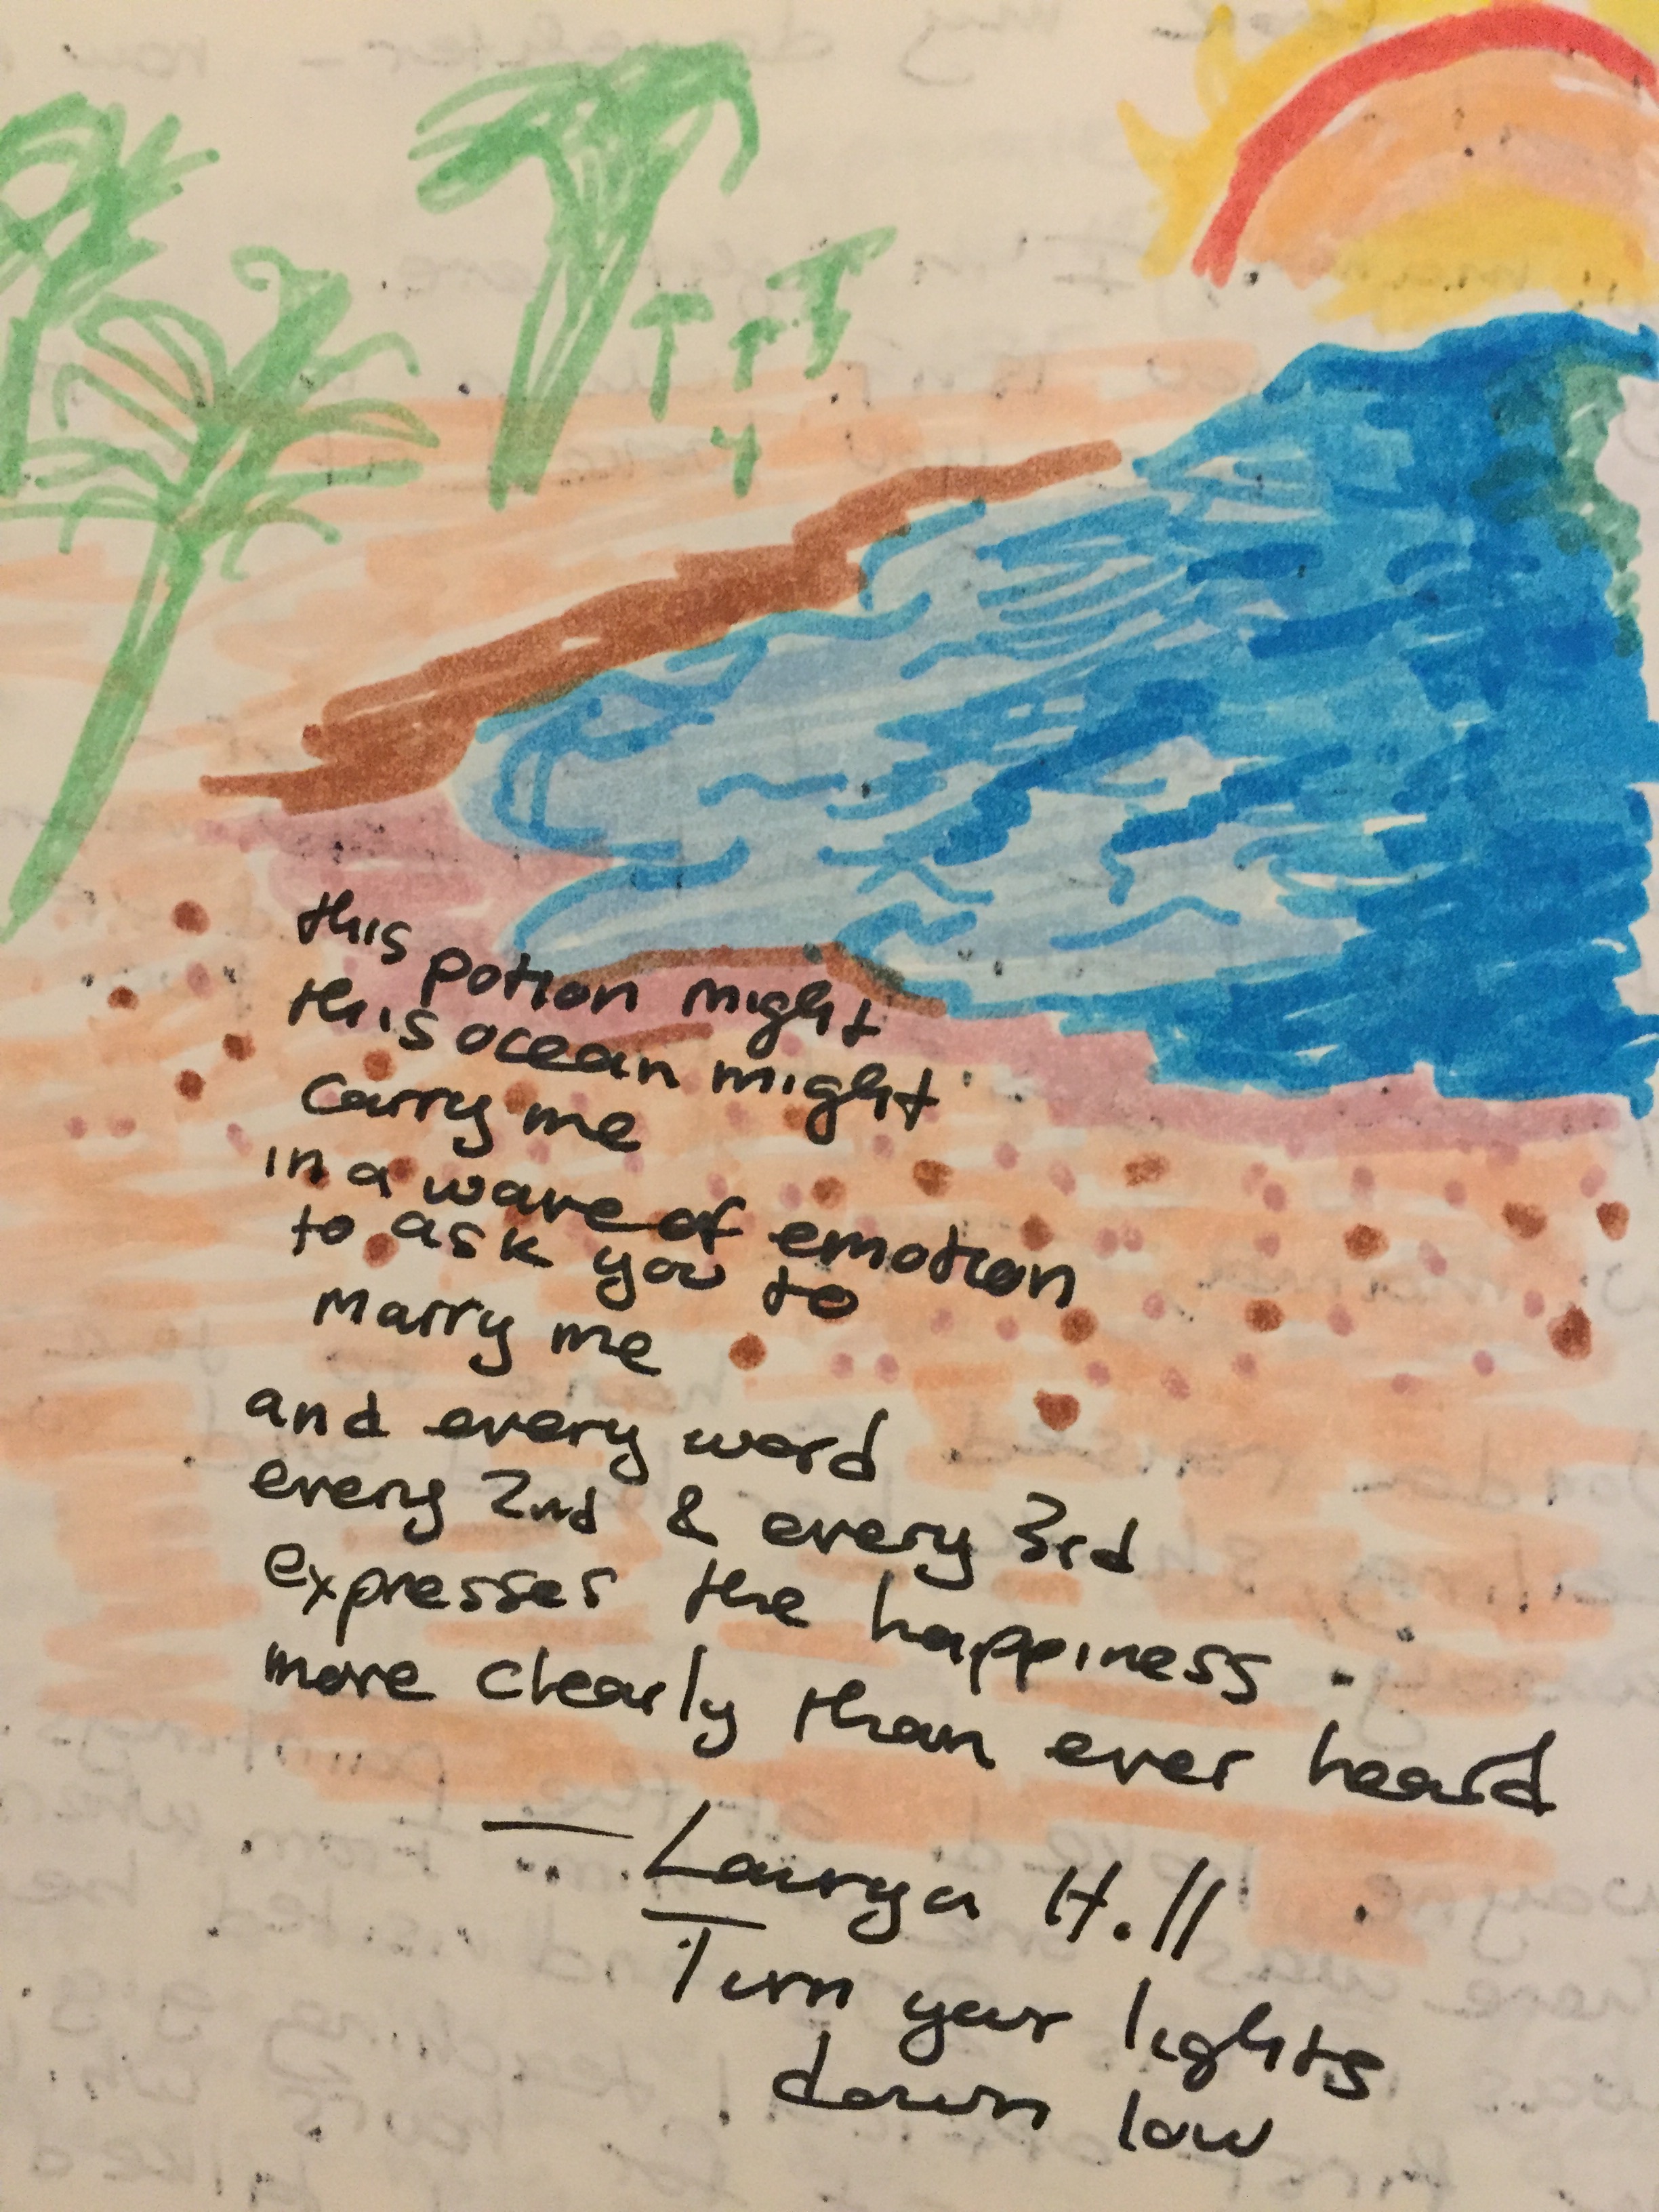 this potion might
this ocean might
carry me
in a wave of emotion
to ask you to
marry me
and every word
every 2nd & every 3rd
expresses the happiness
more clearly than ever heard
— Lauryn Hill
Turn your lights
down low